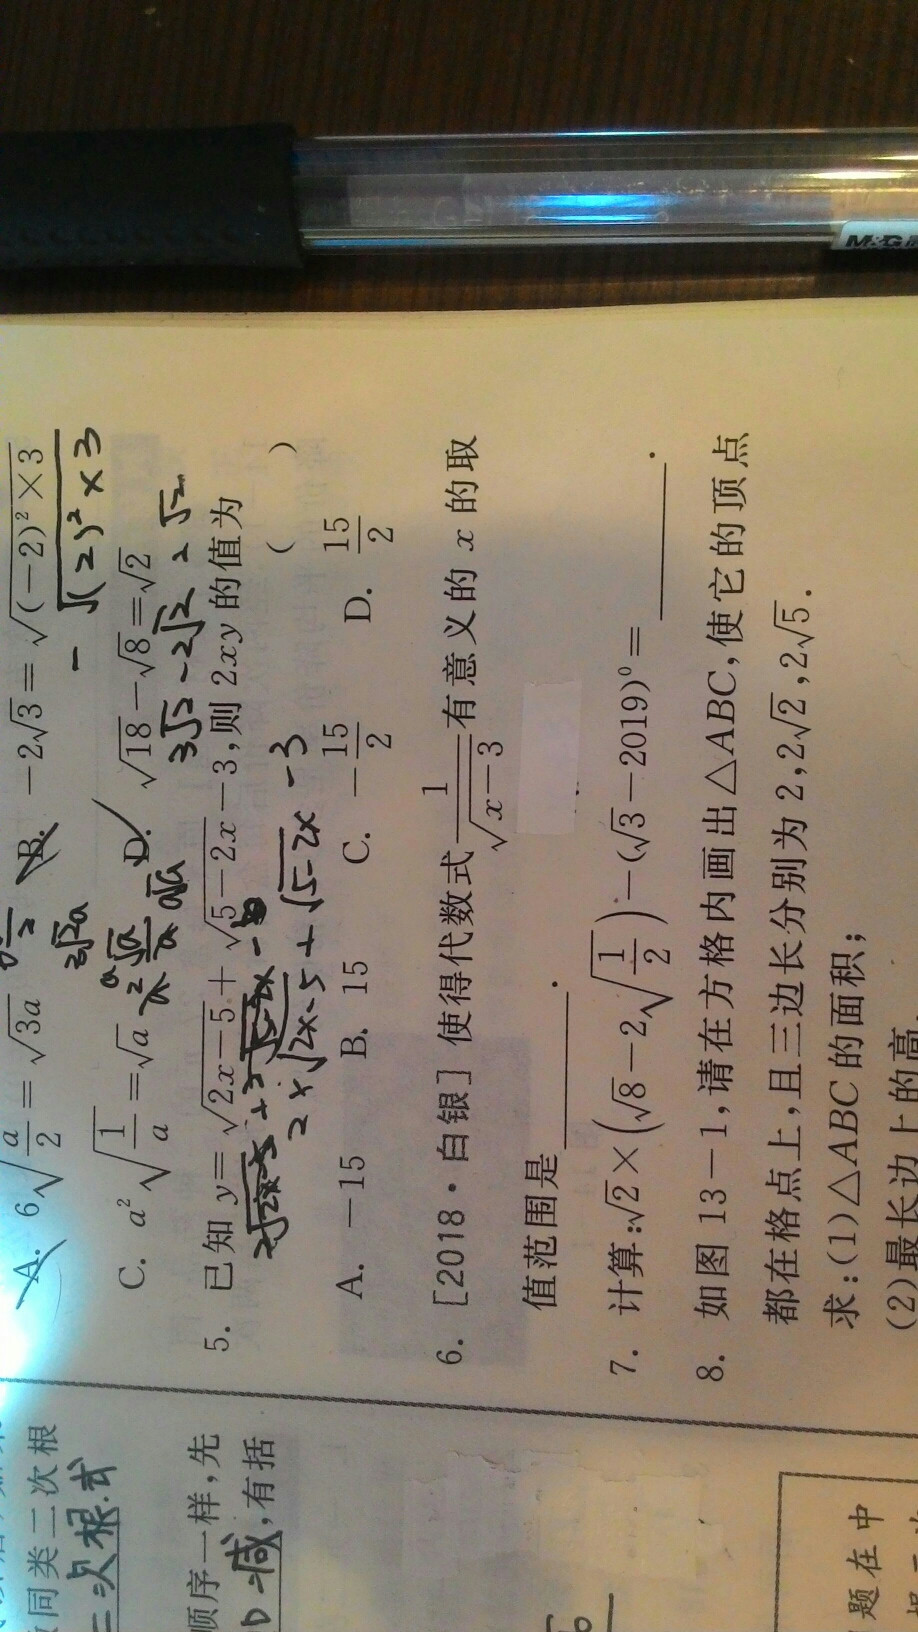 A. 6√(a/2)=√(3a)  B. -2√3=√((-2)²×3)
-√((2)²×3)
C. a²√(1/a)=√a  D. √18-√8=√2
3√2-2√2=√2
5. 已知 y=√(2x-5)+√(5-2x)-3,则 2xy 的值为
( )
2×√(2x-5)+√(5-2x)-3
A. -15  B. 15  C. -15/2  D. 15/2
6. [2018·白银] 使得代数式 1/√(x-3) 有意义的 x 的取
值范围是________.
7. 计算:√2×(√8-2√(1/2))-(√3-2019)⁰=________.
8. 如图 13-1,请在方格内画出△ABC,使它的顶点
都在格点上,且三边长分别为 2,2√2,2√5.
求:(1)△ABC 的面积;
(2)最长边上的高.
同类二次根
二次根式
顺序一样,先
减,有括
题在中